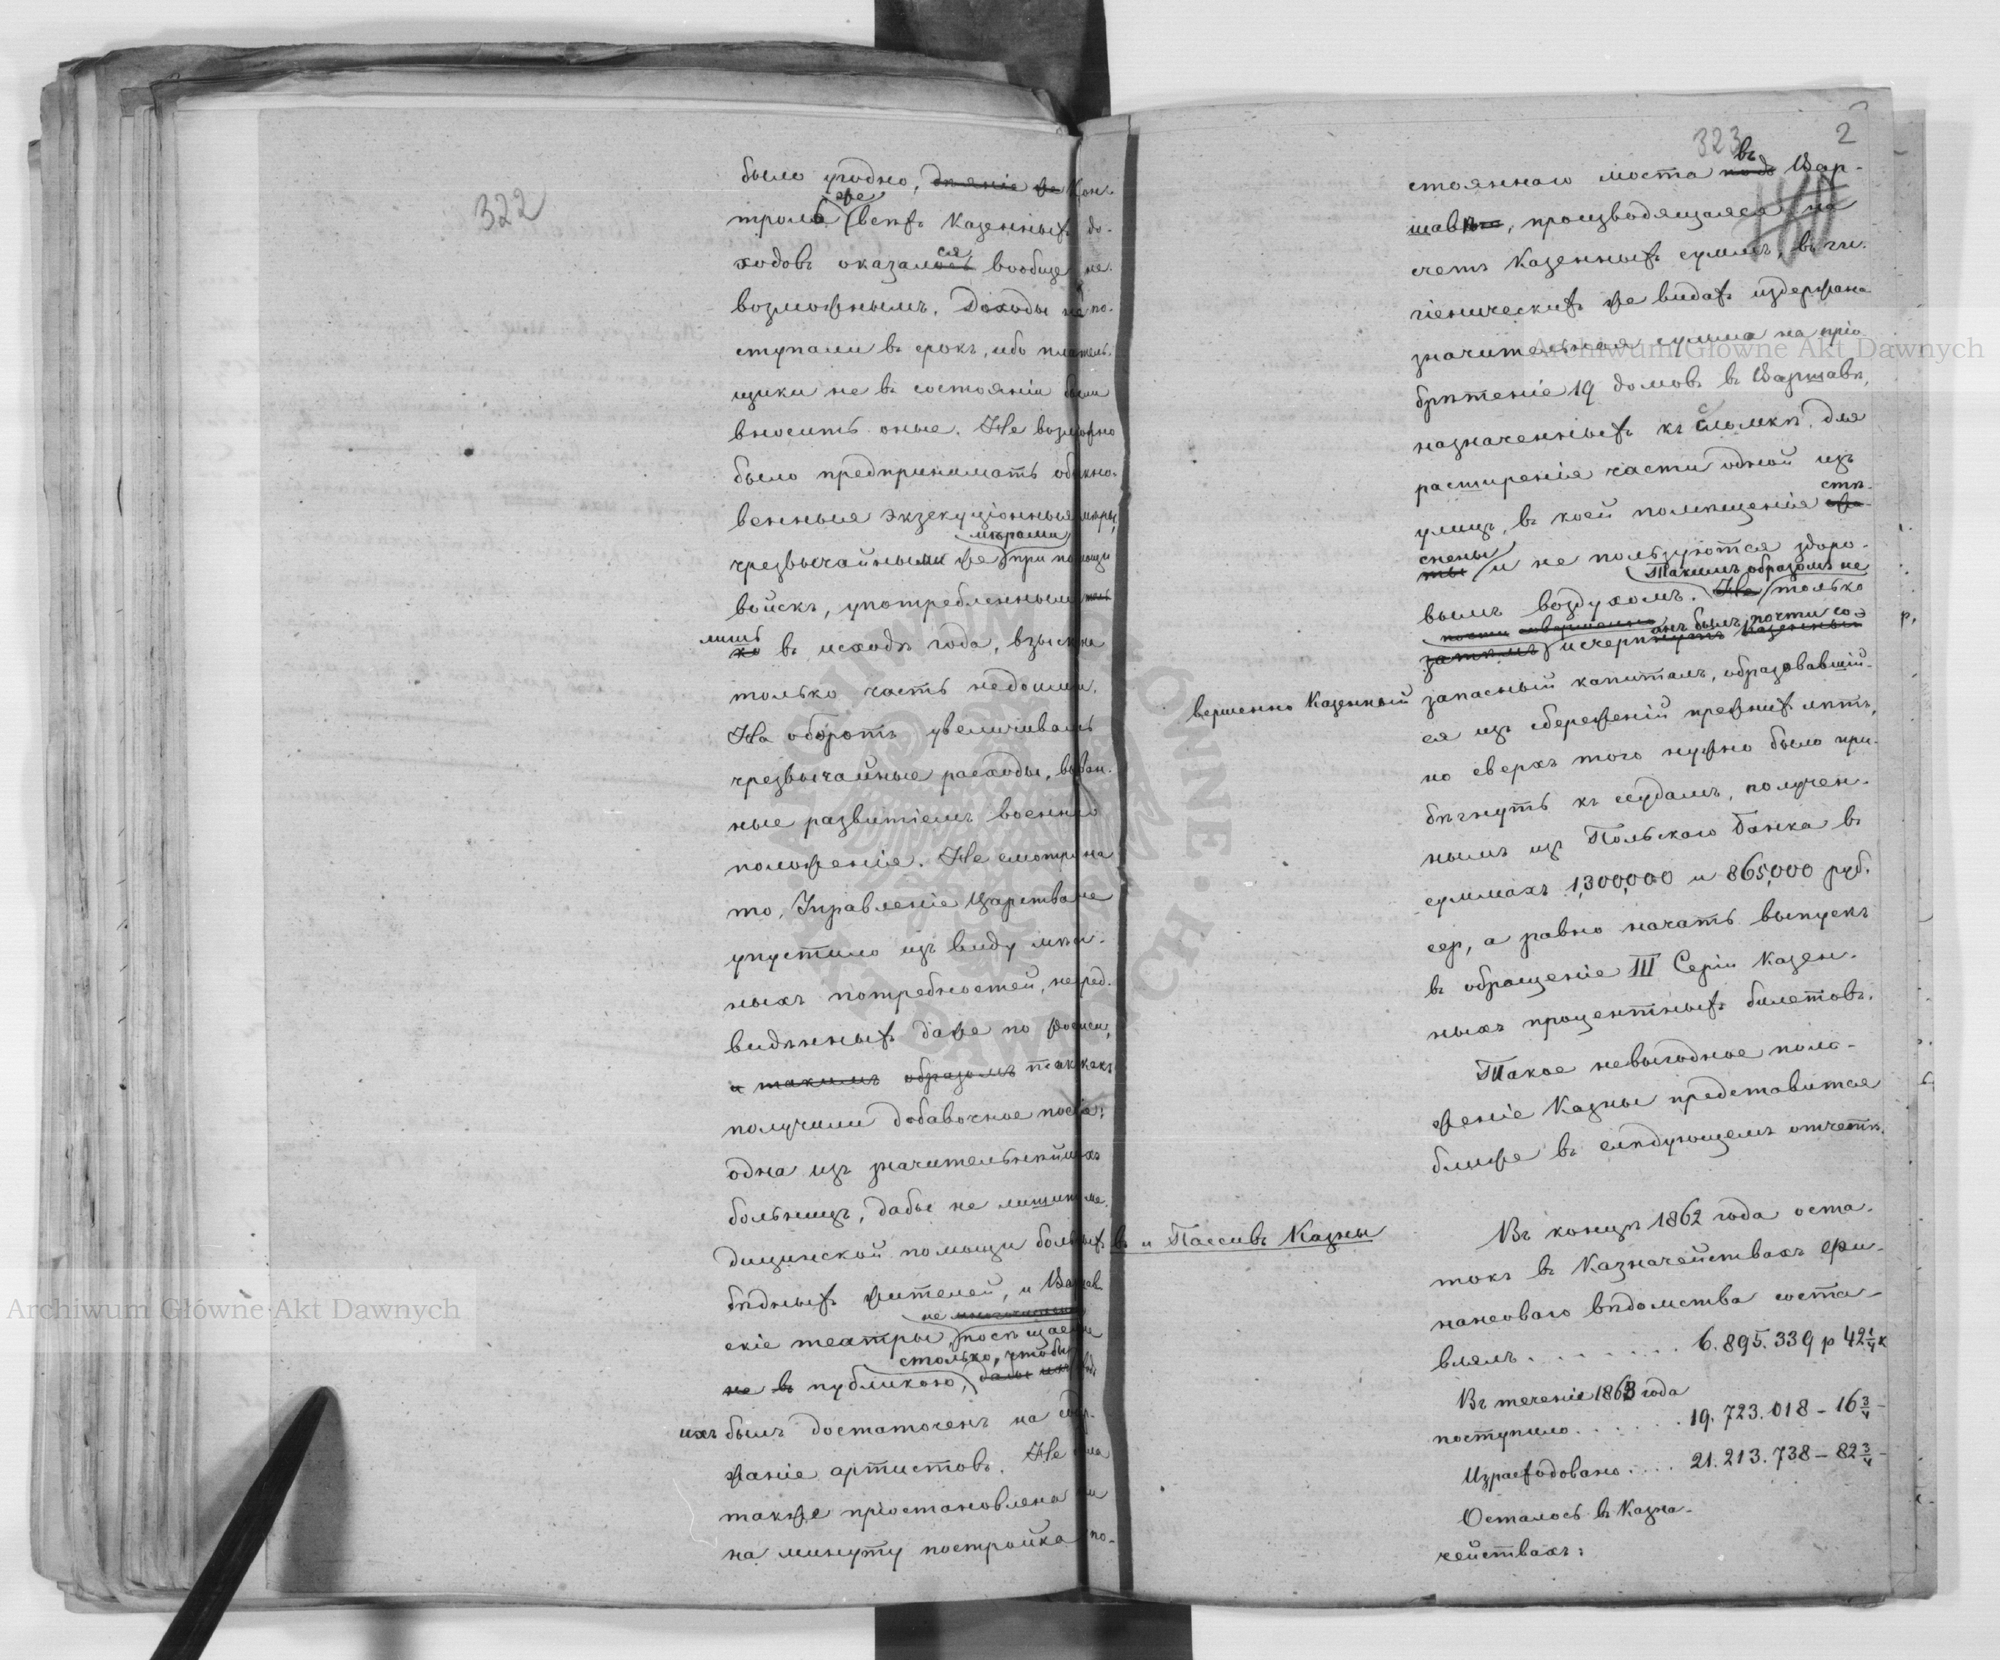 322
было угодно, дѣланіе же Кон-
же
троль всѣхъ Казенныхъ до-
ся
ходовъ оказалось вообще не-
возможнымъ. Доходы не по-
ступали въ срокъ, ибо платель-
щики не въ состояніи были
вносить оные. Не возможно
было предпринимать обыкно-
венныя экзекуціонныя мѣры,
мѣрами
чрезвычайными же при помощи
войскъ, употребленными толь
лишь
ко въ исходѣ года, взыскана
только часть недоимки.
На оборотъ увеличивались
чрезвычайные расходы, вызван-
ные развитіемъ военнаго
положенія. Не смотря на
то, Управленіе Царства не
упустило изъ виду мѣст-
ныхъ потребностей, непред-
видѣнныхъ даже по росписи,
а такимъ образомъ такъ какъ
получили добавочное пособіе:
одна изъ значительнѣйшихъ
больницъ, дабы не лишить ме-
дицинской помощи больныхъ
бѣдныхъ жителей, и Варшав
не многочисленною
скіе театры, посѣщаемые
столько, чтобы
не въ публикою, дабы ихъ
ихъ былъ достаточенъ на содер-
жаніе артистовъ. Не была
также пріостановлена ни
на минуту постройка по-
323
2
въ
стояннаго моста подъ Вар-
180
шавѣ, производящаяся на
счетъ Казенныхъ суммъ, въ ги-
гіеническихъ же видахъ издержана
значительная сумма на прі-
брѣтеніе 19 домовъ въ Варшавѣ,
назначенныхъ къ сломкѣ, для
расширенія части одной изъ
улицъ, въ коей помѣщенія
стѣ-
снены и не пользуются здоро-
Такимъ образомъ не
вымъ воздухомъ. Не только
почти совершенно анъ былъ почти со-
затѣмъ исчерпнутъ Казенный
вершенно Казенный
запасный капиталъ, образовавшій-
ся изъ сбереженій прежнихъ лѣтъ,
но сверхъ того нужно было при-
бѣгнуть къ ссудамъ, получен-
нымъ изъ Польскаго Банка въ
суммахъ 1,300,000 и 865,000 руб.
сер, а равно начать выпускъ
въ обращеніе III Серіи Казен-
ныхъ процентныхъ билетовъ.
Такое невыгодное поло-
женіе Казны представится
ближе въ слѣдующемъ отчетѣ.
въ и Пассивъ Казны
Въ концѣ 1862 года оста-
токъ въ Казначействахъ Фи-
нансоваго вѣдомства соста-
влялъ . . . . . . . 6.895.339 р 42 1/4 к
Въ теченіе 1863 года
поступило . . . . . . 19.723.018 – 16 3/4 –
Израсходовано . . . . 21.213.738 – 82 3/4 –
Осталось въ Казна-
чействахъ:
Archiwum Główne Akt Dawnych
Archiwum Główne Akt Dawnych